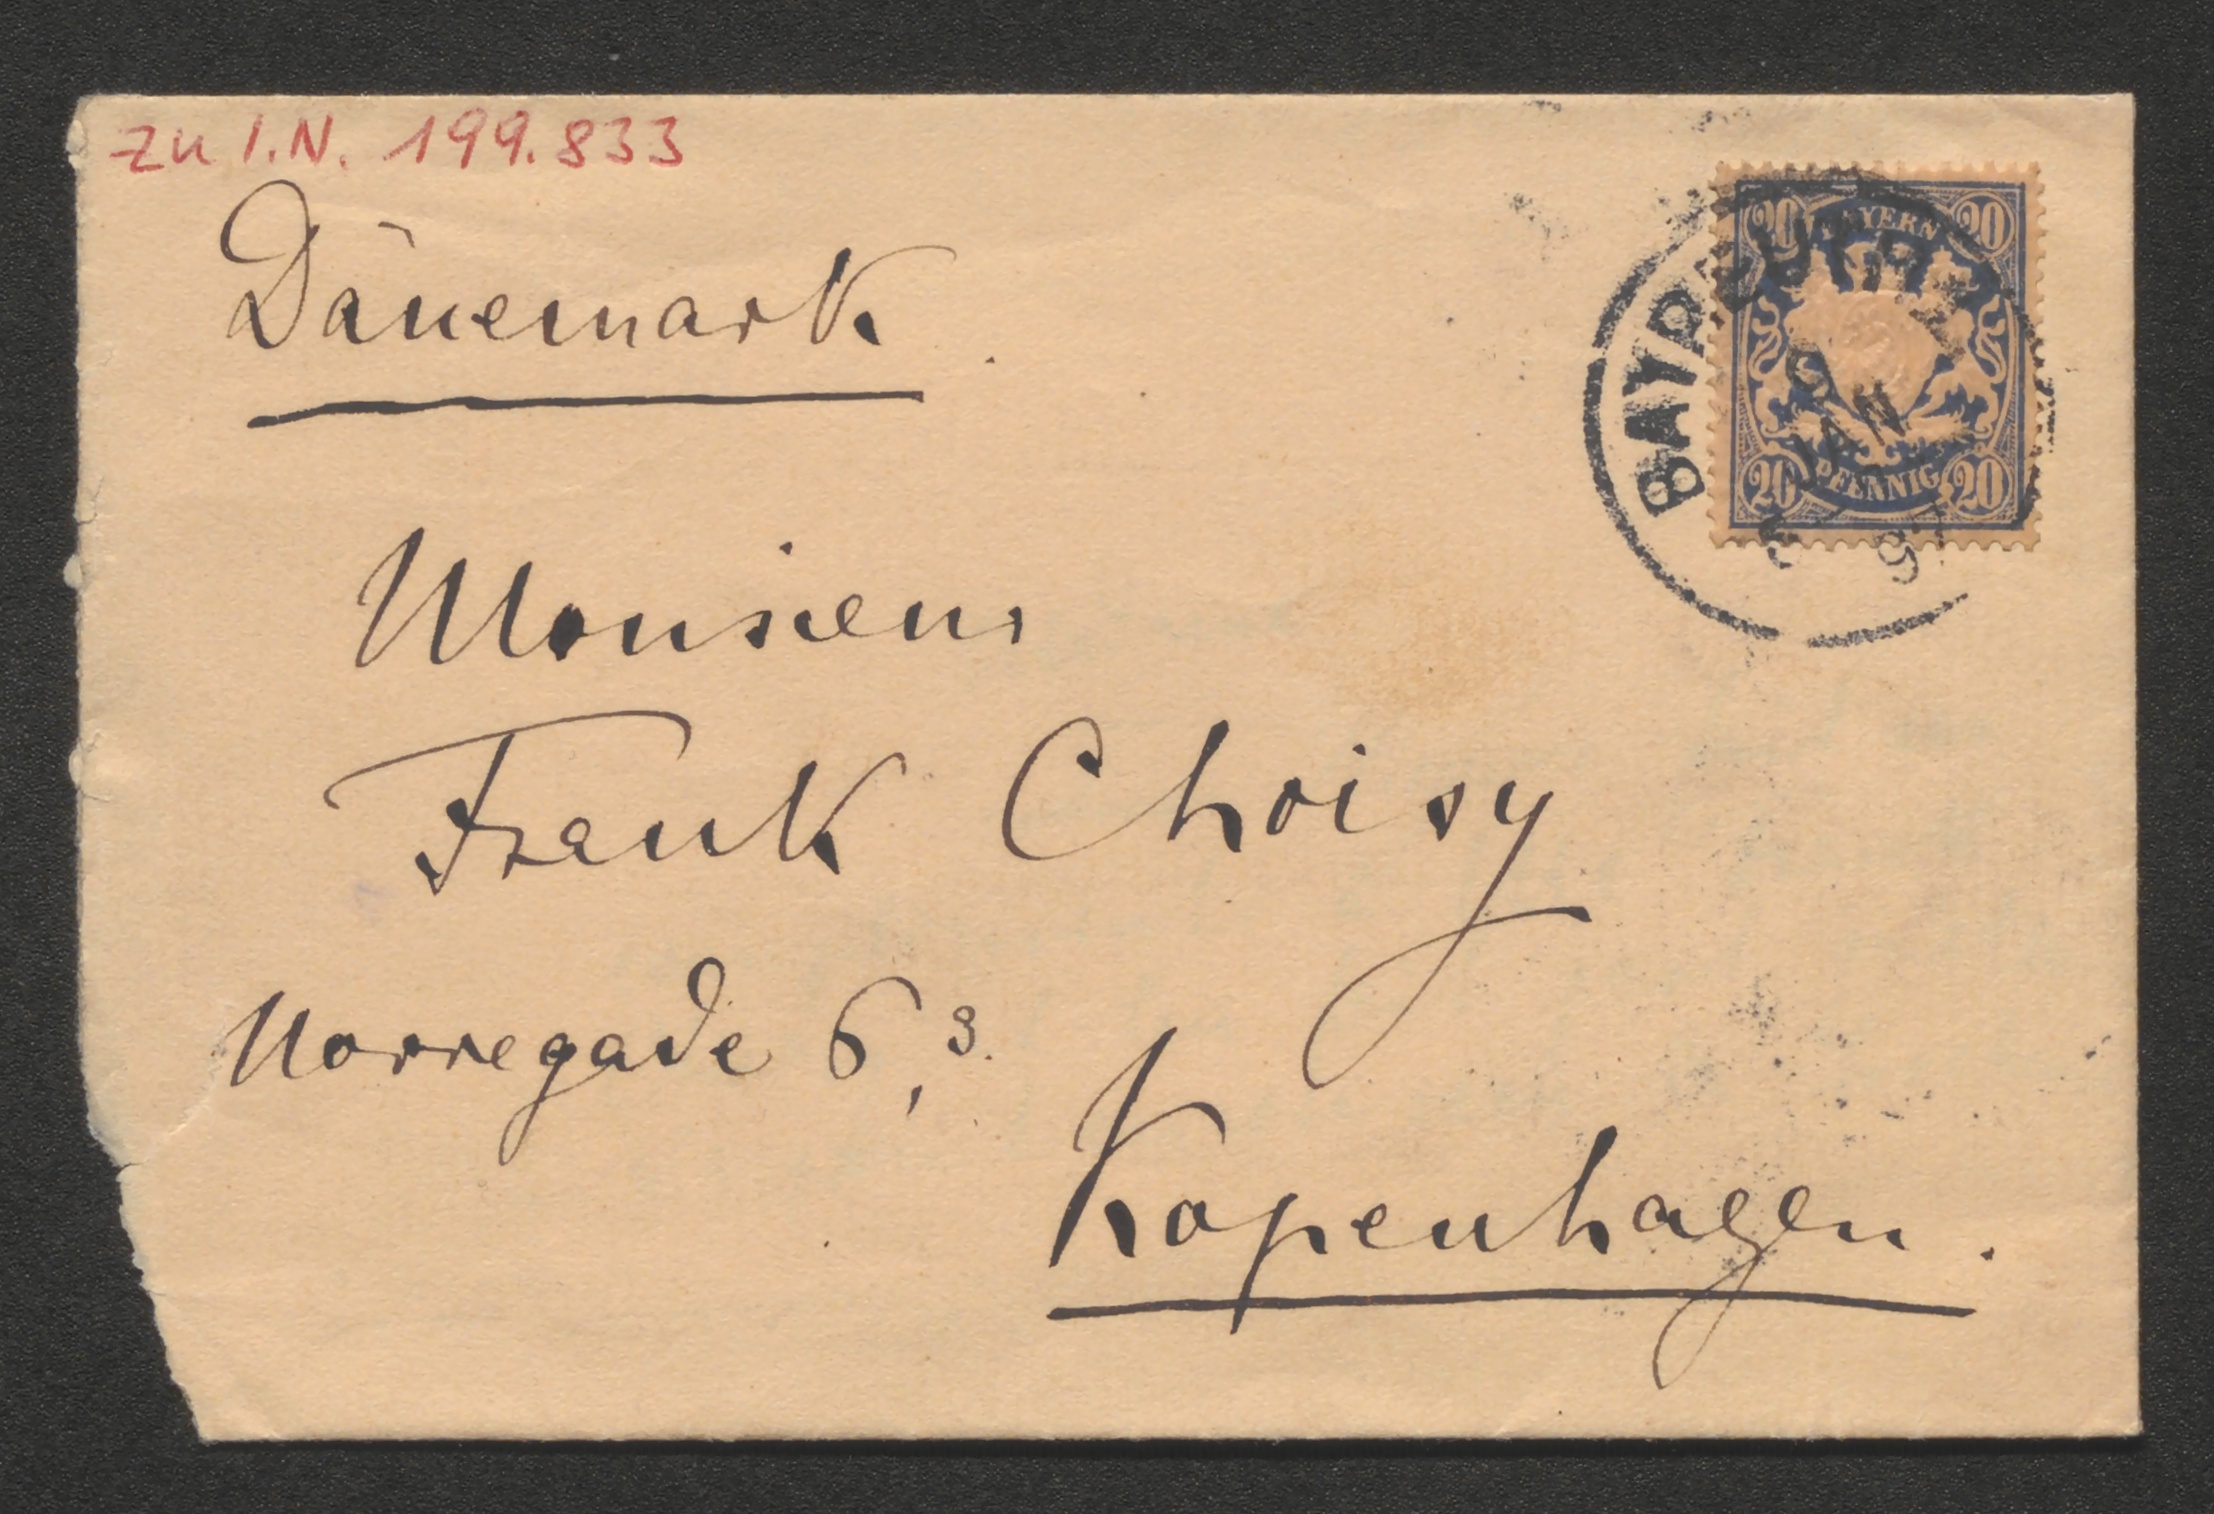 zu I.N. 199.833
Dänemark
20 BAYERN 20
20 PFENNIG 20
BAYREUTH
9
JAN
Monsieur
Frank Choisy
Norregade 6,3.
Kopenhagen.